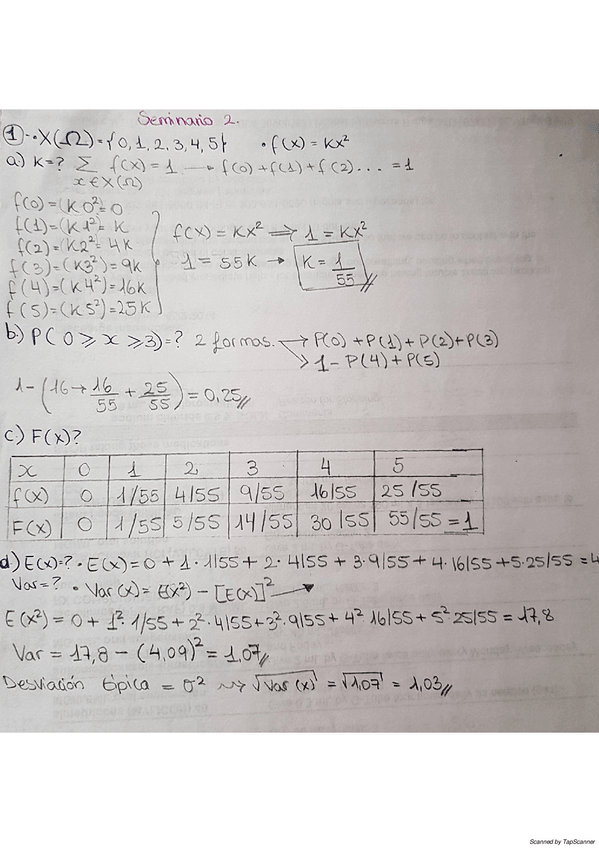 Seminario 2.
1-· X(Ω)={0,1,2,3,4,5} · f(x)=Kx²
a) K=? Σ f(x)=1 → f(0)+f(1)+f(2)... =1
x∈X(Ω)
f(0)=(K0²)=0
f(1)=(K1²)=K
f(2)=K2²=4K
f(3)=(K3²)=9K
f(4)=(K4²)=16K
f(5)=(K5²)=25K
f(x)=Kx² ⇒ 1=Kx²
1=55K → K=1/55
b) P(0⩾x⩾3)=? 2 formas. → P(0)+P(1)+P(2)+P(3)
→ 1-P(4)+P(5)
1-(16→16/55+25/55)=0,25
c) F(x)?
x 0 1 2 3 4 5
f(x) 0 1/55 4/55 9/55 16/55 25/55
F(x) 0 1/55 5/55 14/55 30/55 55/55=1
d) E(x)=? · E(x)=0+1·1/55+2·4/55+3·9/55+4·16/55+5·25/55=4
Var=? · Var(x)=E(x²)-[E(x)]²
E(x²)=0+1²·1/55+2²·4/55+3²·9/55+4²·16/55+5²·25/55=17,8
Var=17,8-(4,09)²=1,07
Desviación típica=σ² → √Var(x)=√1,07=1,03
Scanned by TapScanner